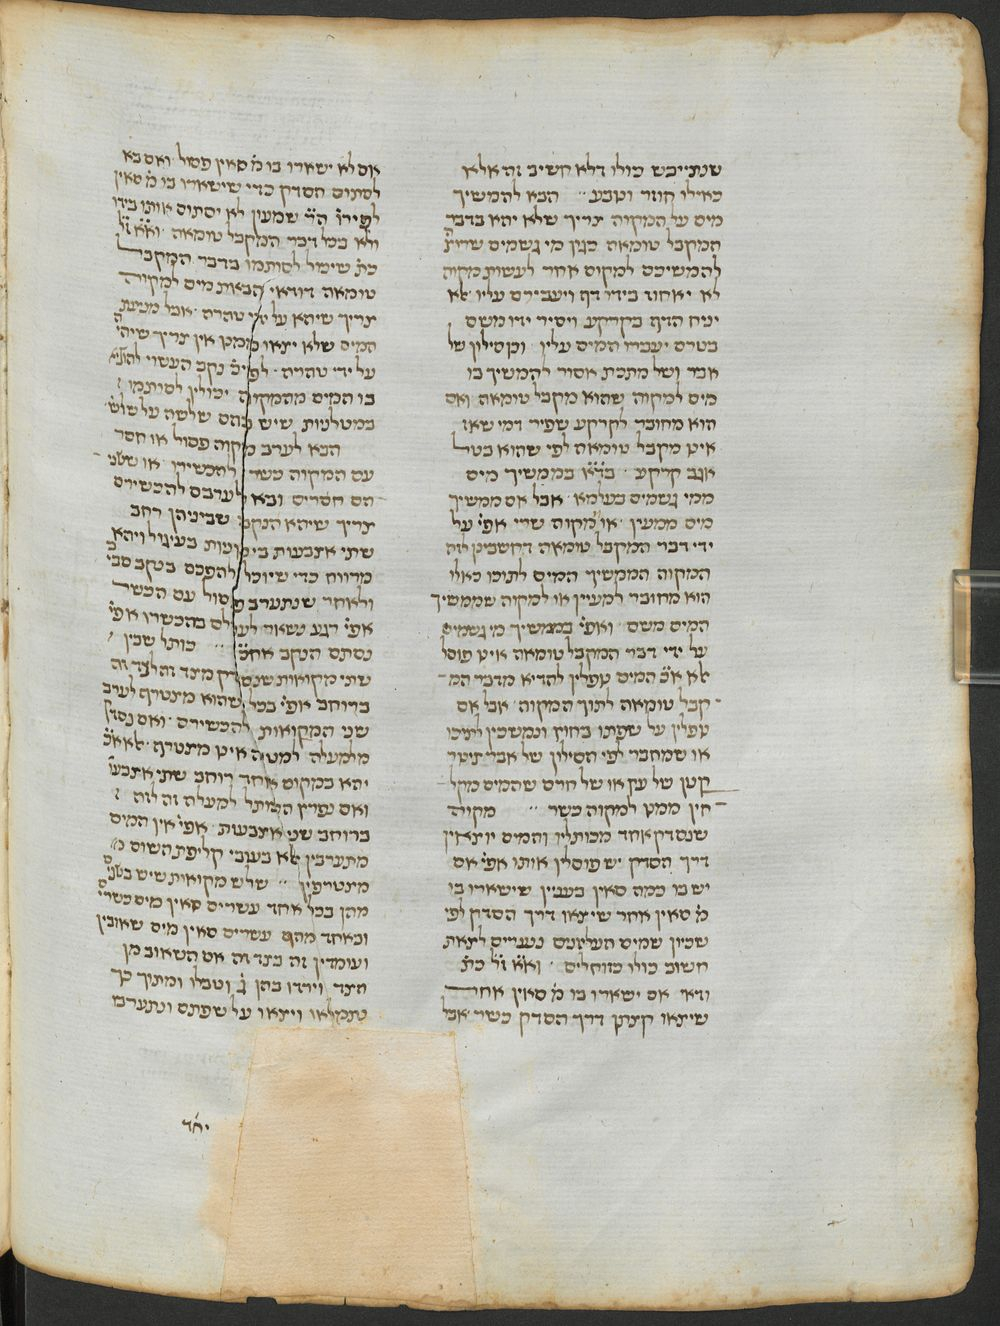 שנתייבש כולו דלא חשיב זה אלא
כאילו חוזר ונובע ׃ הבא להמשיך
מים על המקוה צריך שלא יהא בדבר
המקבל טומאה כגון מי גשמים שרוצה
להמשיכם למקום אחר לעשות מקוה
לא יאחוז בידו דף ויעבירם עליו אלא
יניח הדף בקרקע ויסיר ידו משם
בטרם יעברו המים עליו וכן סילון של
אבר ושל מתכת אסור להמשיך בו
מים למקוה שהוא מקבל טומאה ואם
הוא מחובר לקרקע שפיר דמי שאז
אינו מקבל טומאה לפי שהוא בטל
אגב קרקע בד״א בממשיך מים
ממי גשמים בעלמא אבל אם ממשיך
מים ממעין או ממקוה שרי אפי׳ על
ידי דבר המקבל טומאה דחשבינן לזה
המקוה הממשיך המים לתוכו כאלו
הוא מחובר למעיין או למקוה שממשיך
המים משם ואפי׳ בממשיך מי גשמים
על ידי דבר המקבל טומאה אינו פוסל
אלא א״כ המים נופלין להדיא מדבר המ
קבל טומאה לתוך המקוה אבל אם
נופלין על שפתו בחוץ ונמשכין לתוכו
או שמחבר לפי הסילון של אבר צינור
קטן של עץ או של חרס שהמים מקל
חין ממנו למקוה כשר ׃ מקוה
שנסדק אחד מכותליו והמים יוצאין
דרך הסדק יש פוסלין אותו אפי׳ אם
יש בו כמה סאין בעניין שישארו בו
מ׳ סאין אחר שיצאו דרך הסדק לפי
שכיון שמים העליונים נעורים לצאת
חשוב כולו כזוחלים וא״א ז״ל כת׳
ודאי אם ישארו בו מ׳ סאין אחר
שיצאו קצתן דרך הסדק כשר אבל
אם לא ישארו בו מ׳ סאין פסול ואם בא
לסתום הסדק כדי שישארו בו מ׳ סאין
לפיר׳ הר׳ שמעון לא יסתום אותו בידו
ולא בכל דבר המקבל טומאה וא״א ז״ל
כת׳ שיכול לסותמו בדבר המקבל
טומאה דודאי הבאות מים למקוה
צריך שיהא על ידי טהרה אבל מניעת
המים שלא יצאו ממנו אין צריך שיהי׳
על ידי טהרה לפיכ׳ נקב העשוי להוציא
בו המים מהמקוה יכולין לסותמו
במטלניות שיש בהם שלשה על שלש
הבא לערב מקוה פסול או חסר
עם המקוה כשר להכשירו או ששני
הם חסרים ובא לערבם להכשירם
צריך שיהא הנקב שביניהן רחב
שתי אצבעות בינוניות בעיגול ויהא
מרווח כדי שיוכל להפכם בנקב סביב
ולאחר שנתערב פסול עם הכשר
אפי׳ רגע נשאר לעולם בהכשרו אפי׳
נסתם הנקב אח״כ ׃ כותל שבין
שתי מקואות שנסדק מצד זה לצד זה
ברוחב אפי׳ בכל שהוא מצטרף לערב
שני המקואות להכשירם ואם נסדק
מלמעלה למטה אינו מצטרף אלא א״כ
יהא במקום אחד רוחב שתי אצבעו׳
ואם נפרץ הכותל למעלה זה לזה
ברוחב שני אצבעות אפי׳ אין המים
מתערבין אלא בעובי קליפת השום
מצטרפין ׃ שלש מקואות שיש בשנים
מהן בכל אחד עשרים סאין מים כשרים
ובאחד מהם עשרים סאין מים שאובין
ועומדין זה בצד זה אם השאוב מן
הצד וירדו בהן ג׳ וטבלו ומתוך כך
נתמלאו ויצאו על שפתם ונתערבו